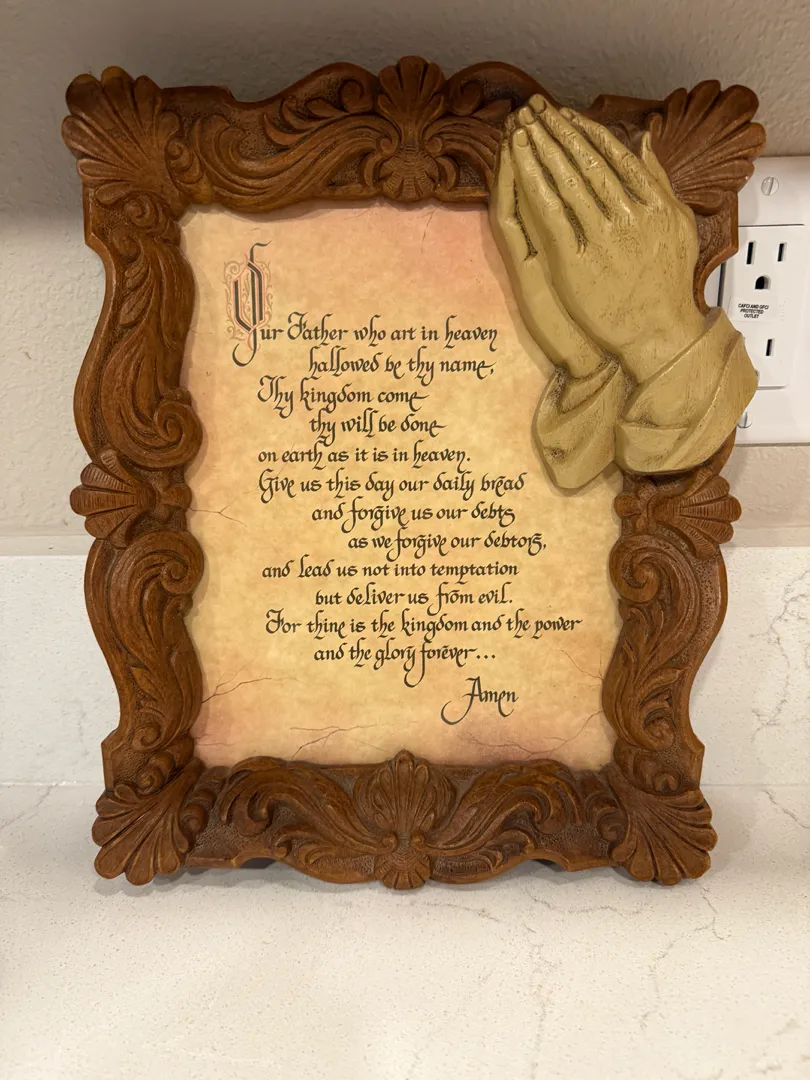 Our Father who art in heaven
hallowed be thy name,
Thy kingdom come
thy will be done
on earth as it is in heaven.
Give us this day our daily bread
and forgive us our debts
as we forgive our debtors,
and lead us not into temptation
but deliver us from evil.
For thine is the kingdom and the power
and the glory forever...
Amen
CAFCI AND GFCI
PROTECTED
OUTLET